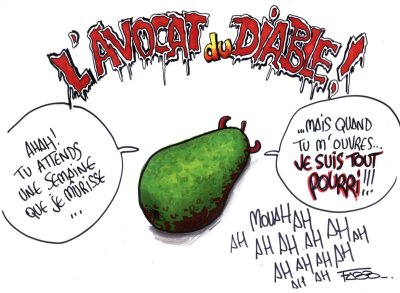 L'AVOCAT du DIABLE!
AHAH!
TU ATTENDS
UNE SEMAINE
QUE JE MÛRISSE
...
...MAIS QUAND
TU M'OUVRES...
JE SUIS TOUT
POURRI!!!
MOUAH AH
AH AH AH AH AH AH
AH AH AH AH
AH AH